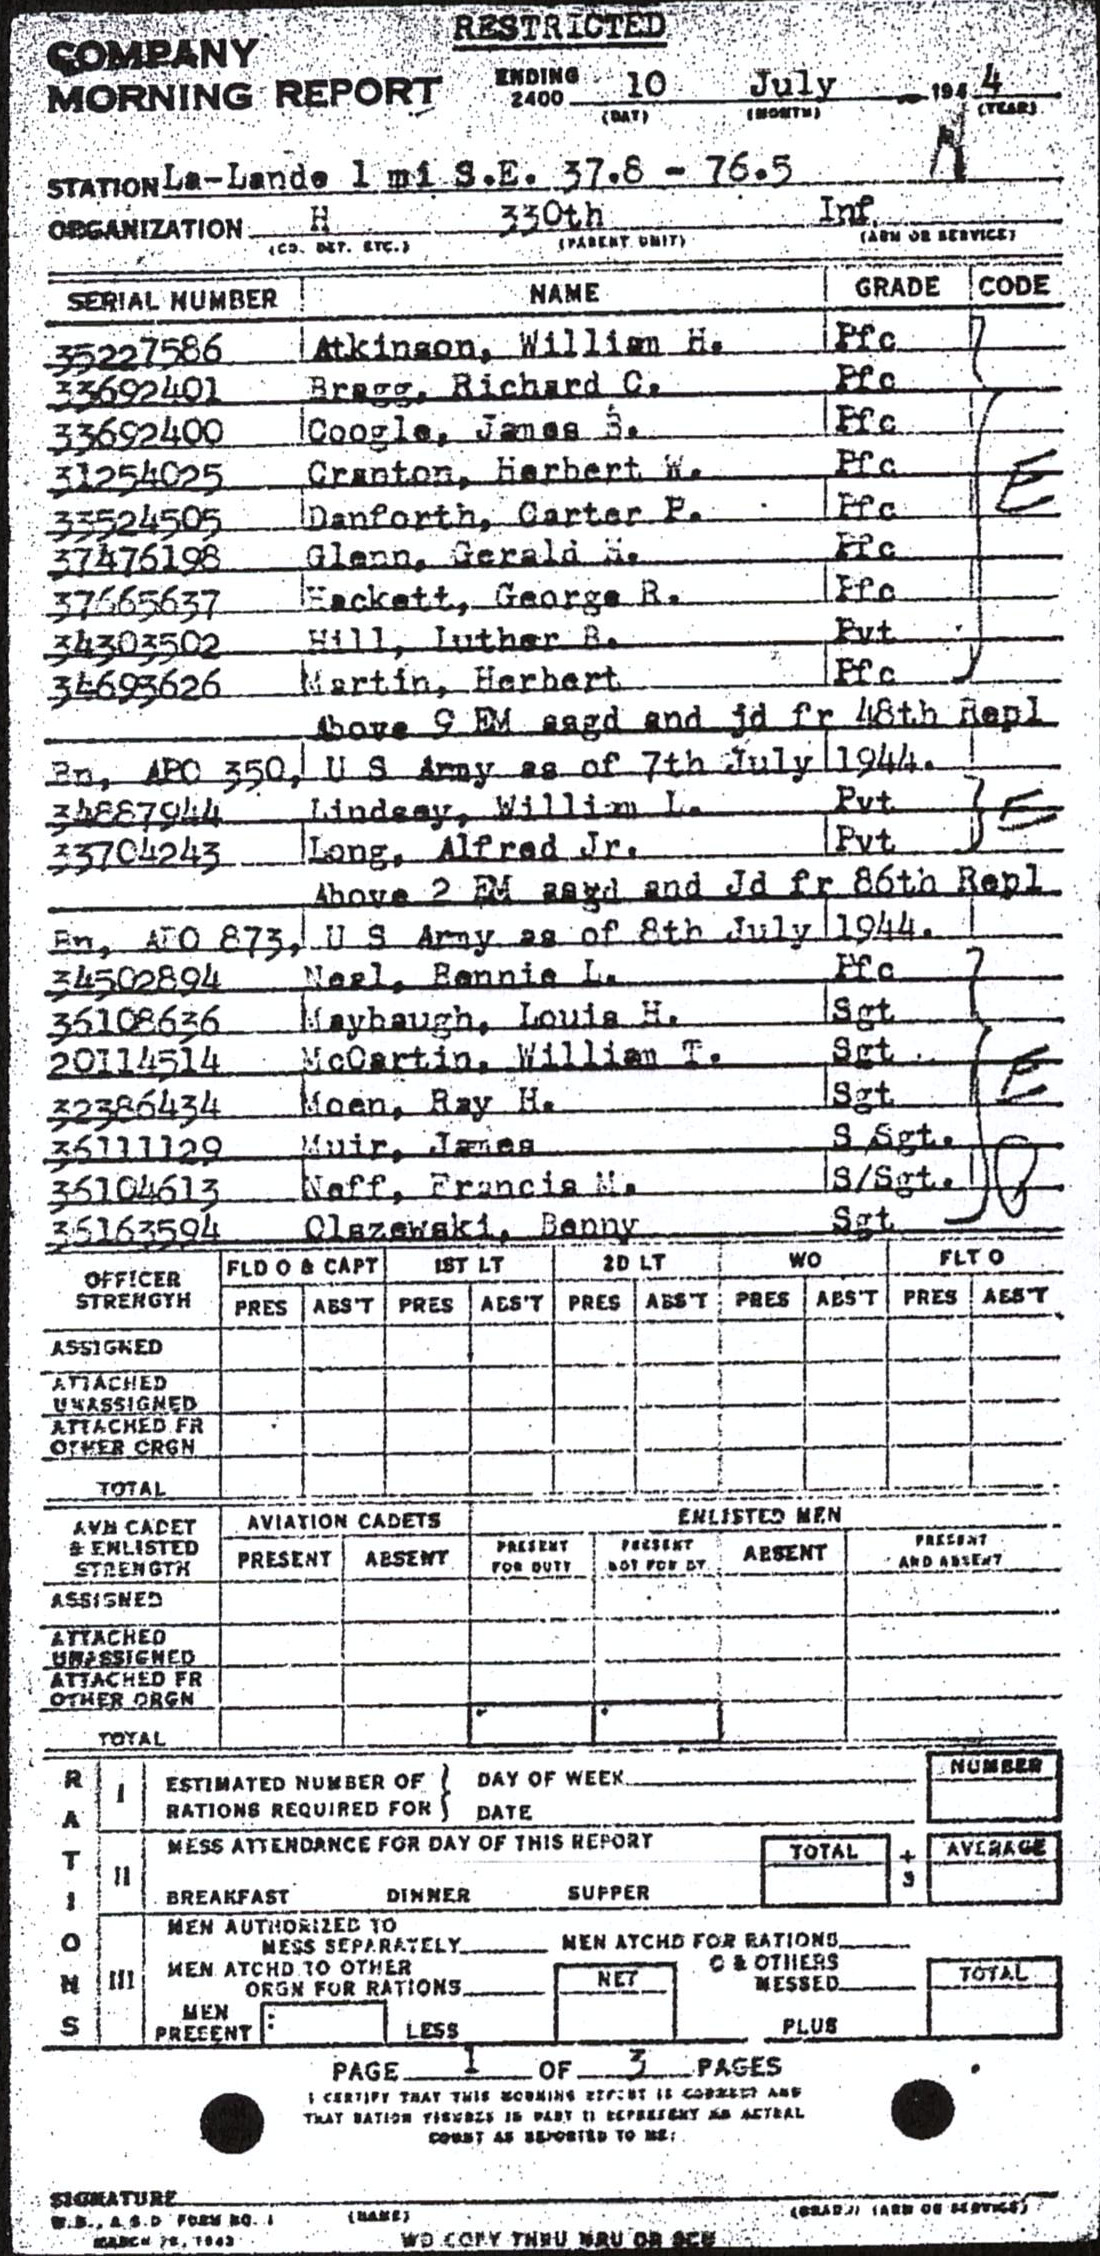 RESTRICTED
COMPANY
MORNING REPORT
ENDING 2400 10 July 1944
(DAY) (MONTH) (YEAR)
STATION La-Lande 1 mi S.E. 37.8 - 76.5
ORGANIZATION H 330th Inf.
(CO. DET. ETC.) (PARENT UNIT) (ARM OR SERVICE)
SERIAL NUMBER NAME GRADE CODE
35227586 Atkinson, William H. Pfc
33692401 Bragg, Richard C. Pfc
33692400 Coogle, James S. Pfc
31254025 Cranton, Herbert W. Pfc E
33524505 Danforth, Carter P. Pfc
37476198 Glenn, Gerald Pfc
37665637 Hackett, George R. Pfc
34303502 Hill, Luther B. Pvt
34693626 Martin, Herbert Pfc
Above 9 EM asgd and jd fr 48th Repl
Bn, APO 350, U S Army as of 7th July 1944.
34887944 Lindsey, William L. Pvt E
33704243 Long, Alfred Jr. Pvt
Above 2 EM asgd and Jd fr 86th Repl
Bn, APO 873, U S Army as of 8th July 1944.
34502894 Neal, Bennie L. Pfc
36108636 Maybaugh, Louis H. Sgt
20114514 McCartin, William T. Sgt E
32386434 Moen, Ray H. Sgt
36111129 Muir, James S Sgt.
36104613 Neff, Francis M. S/Sgt.
36163594 Olszewski, Benny Sgt
OFFICER STRENGTH FLD O & CAPT 1ST LT 2D LT WO FLT O
PRES ABS'T PRES ABS'T PRES ABS'T PRES ABS'T PRES ABS'T
ASSIGNED
ATTACHED
UNASSIGNED
ATTACHED FR
OTHER ORGN
TOTAL
AVN CADET & ENLISTED STRENGTH AVIATION CADETS ENLISTED MEN
PRESENT ABSENT PRESENT FOR DUTY PRESENT NOT FOR DY ABSENT PRESENT AND ABSENT
ASSIGNED
ATTACHED
UNASSIGNED
ATTACHED FR
OTHER ORGN
TOTAL
RATIONS
I ESTIMATED NUMBER OF DAY OF WEEK NUMBER
RATIONS REQUIRED FOR DATE
II MESS ATTENDANCE FOR DAY OF THIS REPORT TOTAL ÷ 3 AVERAGE
BREAKFAST DINNER SUPPER
III MEN AUTHORIZED TO
MESS SEPARATELY MEN ATCHD FOR RATIONS
MEN ATCHD TO OTHER
ORGN FOR RATIONS NET O & OTHERS MESSED TOTAL
MEN PRESENT LESS PLUS
PAGE 1 OF 3 PAGES
I CERTIFY THAT THIS MORNING REPORT IS CORRECT AND
THAT RATION FIGURES IN PART II REPRESENT AN ACTUAL
COUNT AS REPORTED TO ME:
SIGNATURE
(NAME) (GRADE) (ARM OR SERVICE)
W.D., A.G.D FORM NO. 1
MARCH 1943
WD COPY THRU MRU OR SCU